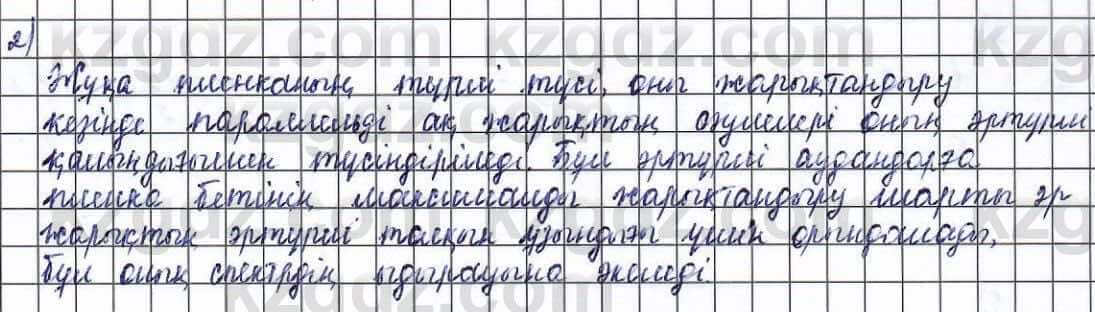 2)
Жұқа пленканың түрлі түсі, оны жарықтандыру
кезінде параллельді ақ жарықтың сәулелері оның әртүрлі
қалыңдығымен түсіндіріледі. Бұл әртүрлі аудандарға
пленка бетінің максималды жарықтандыру шарты әр
жарықтың әртүрлі толқын ұзындығы үшін орындалады,
бұл оның спектрдің ыдырауына әкеледі.